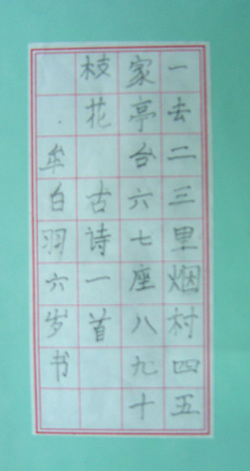 一去二三里烟村四五
家亭台六七座八九十
枝花 古诗一首
牟白羽六岁书